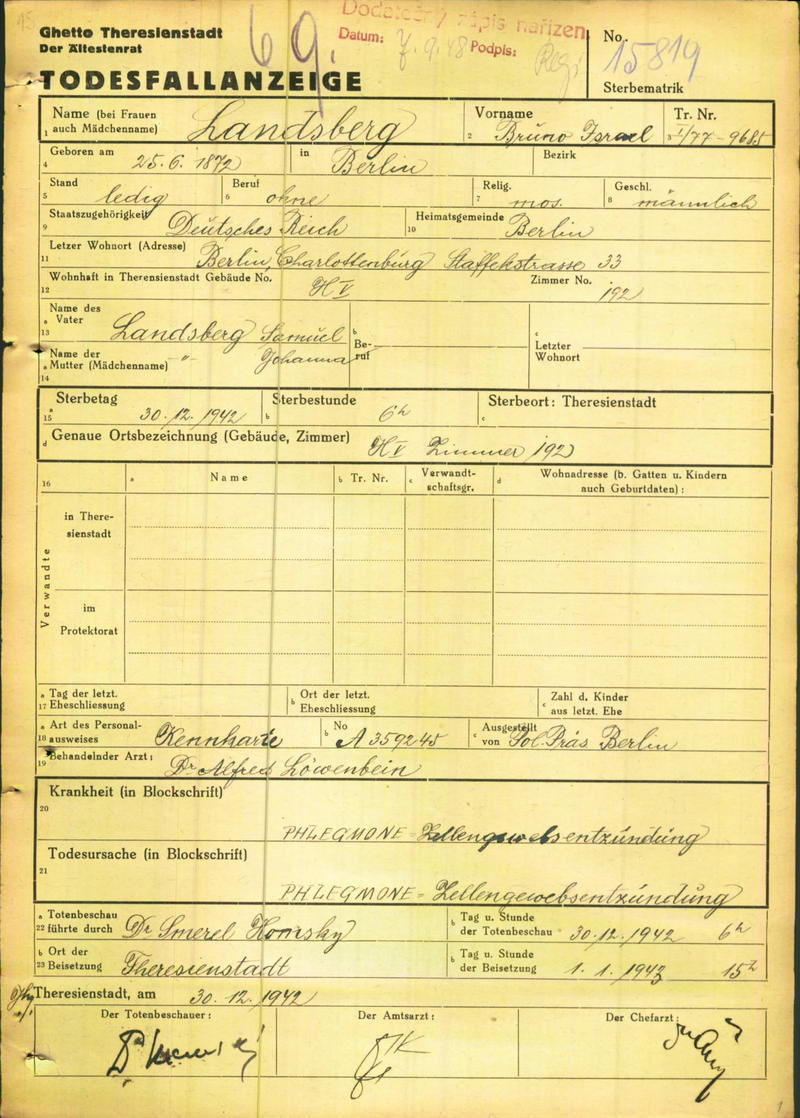 Ghetto Theresienstadt
Der Ältestenrat
TODESFALLANZEIGE
69.
Dodatečný zápis nařízen
Datum: 7.9.48 Podpis:
No. 15819
Sterbematrik
1 Name (bei Frauen auch Mädchenname) Landsberg
2 Vorname Bruno Israel
3 Tr. Nr. I/77 - 9685
4 Geboren am 25.6.1872 in Berlin Bezirk
5 Stand ledig
6 Beruf ohne
7 Relig. mos.
8 Geschl. männlich
9 Staatszugehörigkeit Deutsches Reich
10 Heimatsgemeinde Berlin
11 Letzer Wohnort (Adresse) Berlin, Charlottenburg 33
12 Wohnhaft in Therensienstadt Gebäude No. H V Zimmer No. 192
13 a Name des Vater Landsberg Samuel
b Be-ruf
c Letzter Wohnort
14 a Name der Mutter (Mädchenname) " Johanna
15 a Sterbetag 30.12.1942
b Sterbestunde 6h
c Sterbeort: Theresienstadt
d Genaue Ortsbezeichnung (Gebäude, Zimmer) H V Zimmer 192
16 a Name b Tr. Nr. c Verwandt-schaftsgr. d Wohnadresse (b. Gatten u. Kindern auch Geburtdaten) :
Verwandte
in There-
sienstadt
im
Protektorat
17 a Tag der letzt. Eheschliessung
b Ort der letzt. Eheschliessung
c Zahl d. Kinder aus letzt. Ehe
18 a Art des Personal-ausweises Kennkarte
b No A 359245
c Ausgestellt von Pol. Präs Berlin
19 Behandelnder Arzt: Dr Alfred Löwenbein
20 Krankheit (in Blockschrift)
PHLEGMONE = Zellengewebsentzündung
21 Todesursache (in Blockschrift)
PHLEGMONE = Zellengewebsentzündung
22 a Totenbeschau führte durch Dr Smerel
b Tag u. Stunde der Totenbeschau 30.12.1942 6h
23 b Ort der Beisetzung Theresienstadt
b Tag u. Stunde der Beisetzung 1.1.1943 15h
Theresienstadt, am 30.12.1942
Der Totenbeschauer :
Der Amtsarzt :
Der Chefarzt :